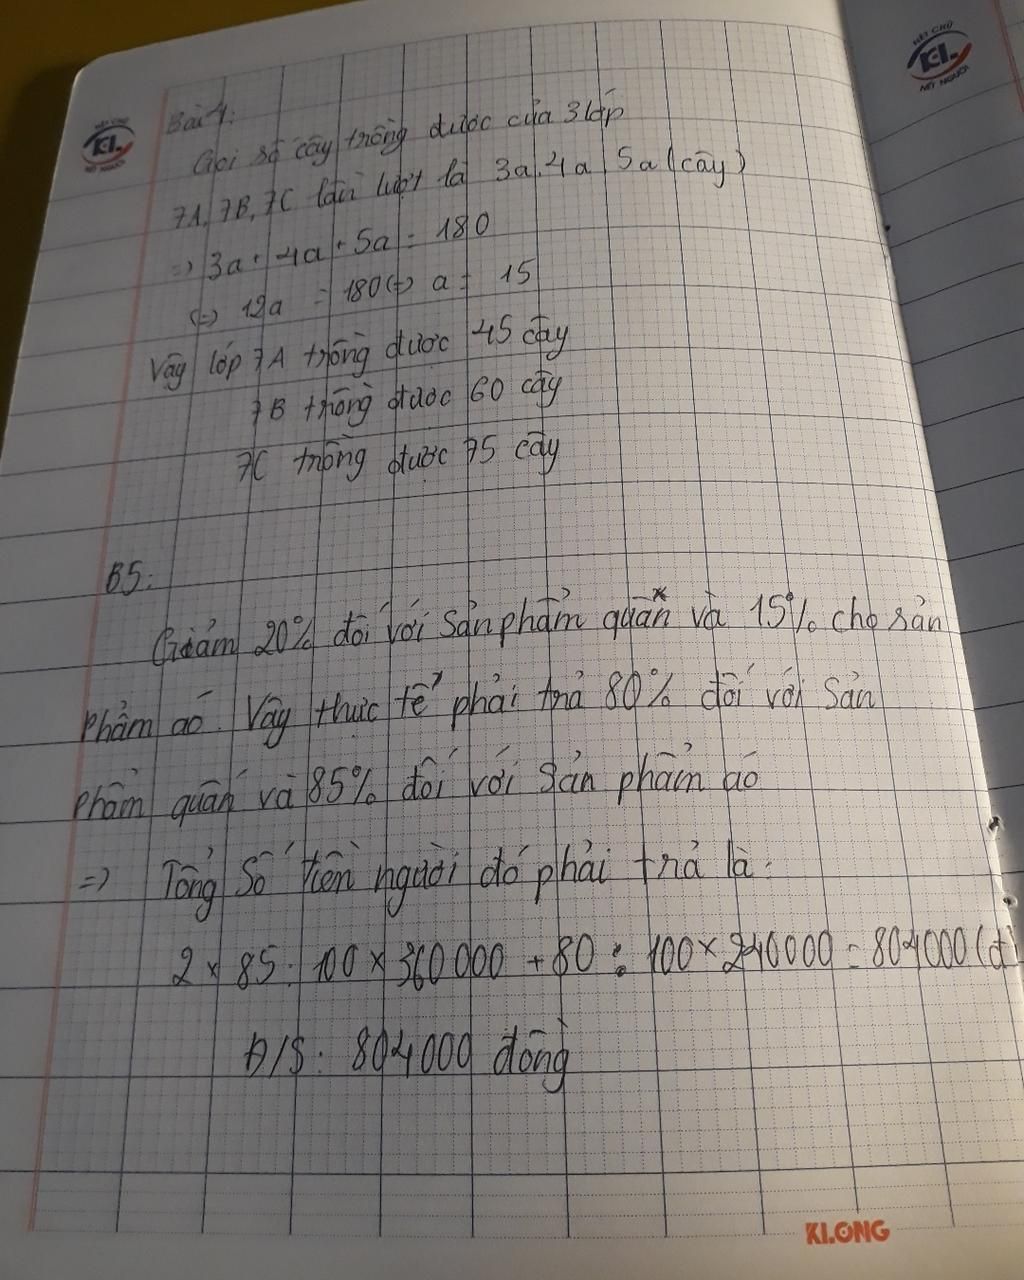 NÉT CHỮ
KL
NẾT NGƯỜI
NÉT CHỮ
KL
NẾT NGƯỜI
Bài 4:
Gọi số cây trồng được của 3 lớp
7A, 7B, 7C lần lượt là 3a, 4a, 5a (cây)
=> 3a + 4a + 5a = 180
(=) 12a = 180 (=) a = 15
Vậy lớp 7A trồng được 45 cây
7B trồng được 60 cây
7C trồng được 75 cây
B5:
Giảm 20% đối với sản phẩm quần và 15% cho sản
phẩm áo. Vậy thực tế phải trả 80% đối với sản
phẩm quần và 85% đối với sản phẩm áo
=> Tổng số tiền người đó phải trả là:
2 × 85 : 100 × 360 000 + 80 : 100 × 240000 = 804000 (đ)
Đ/S: 804000 đồng
KLONG